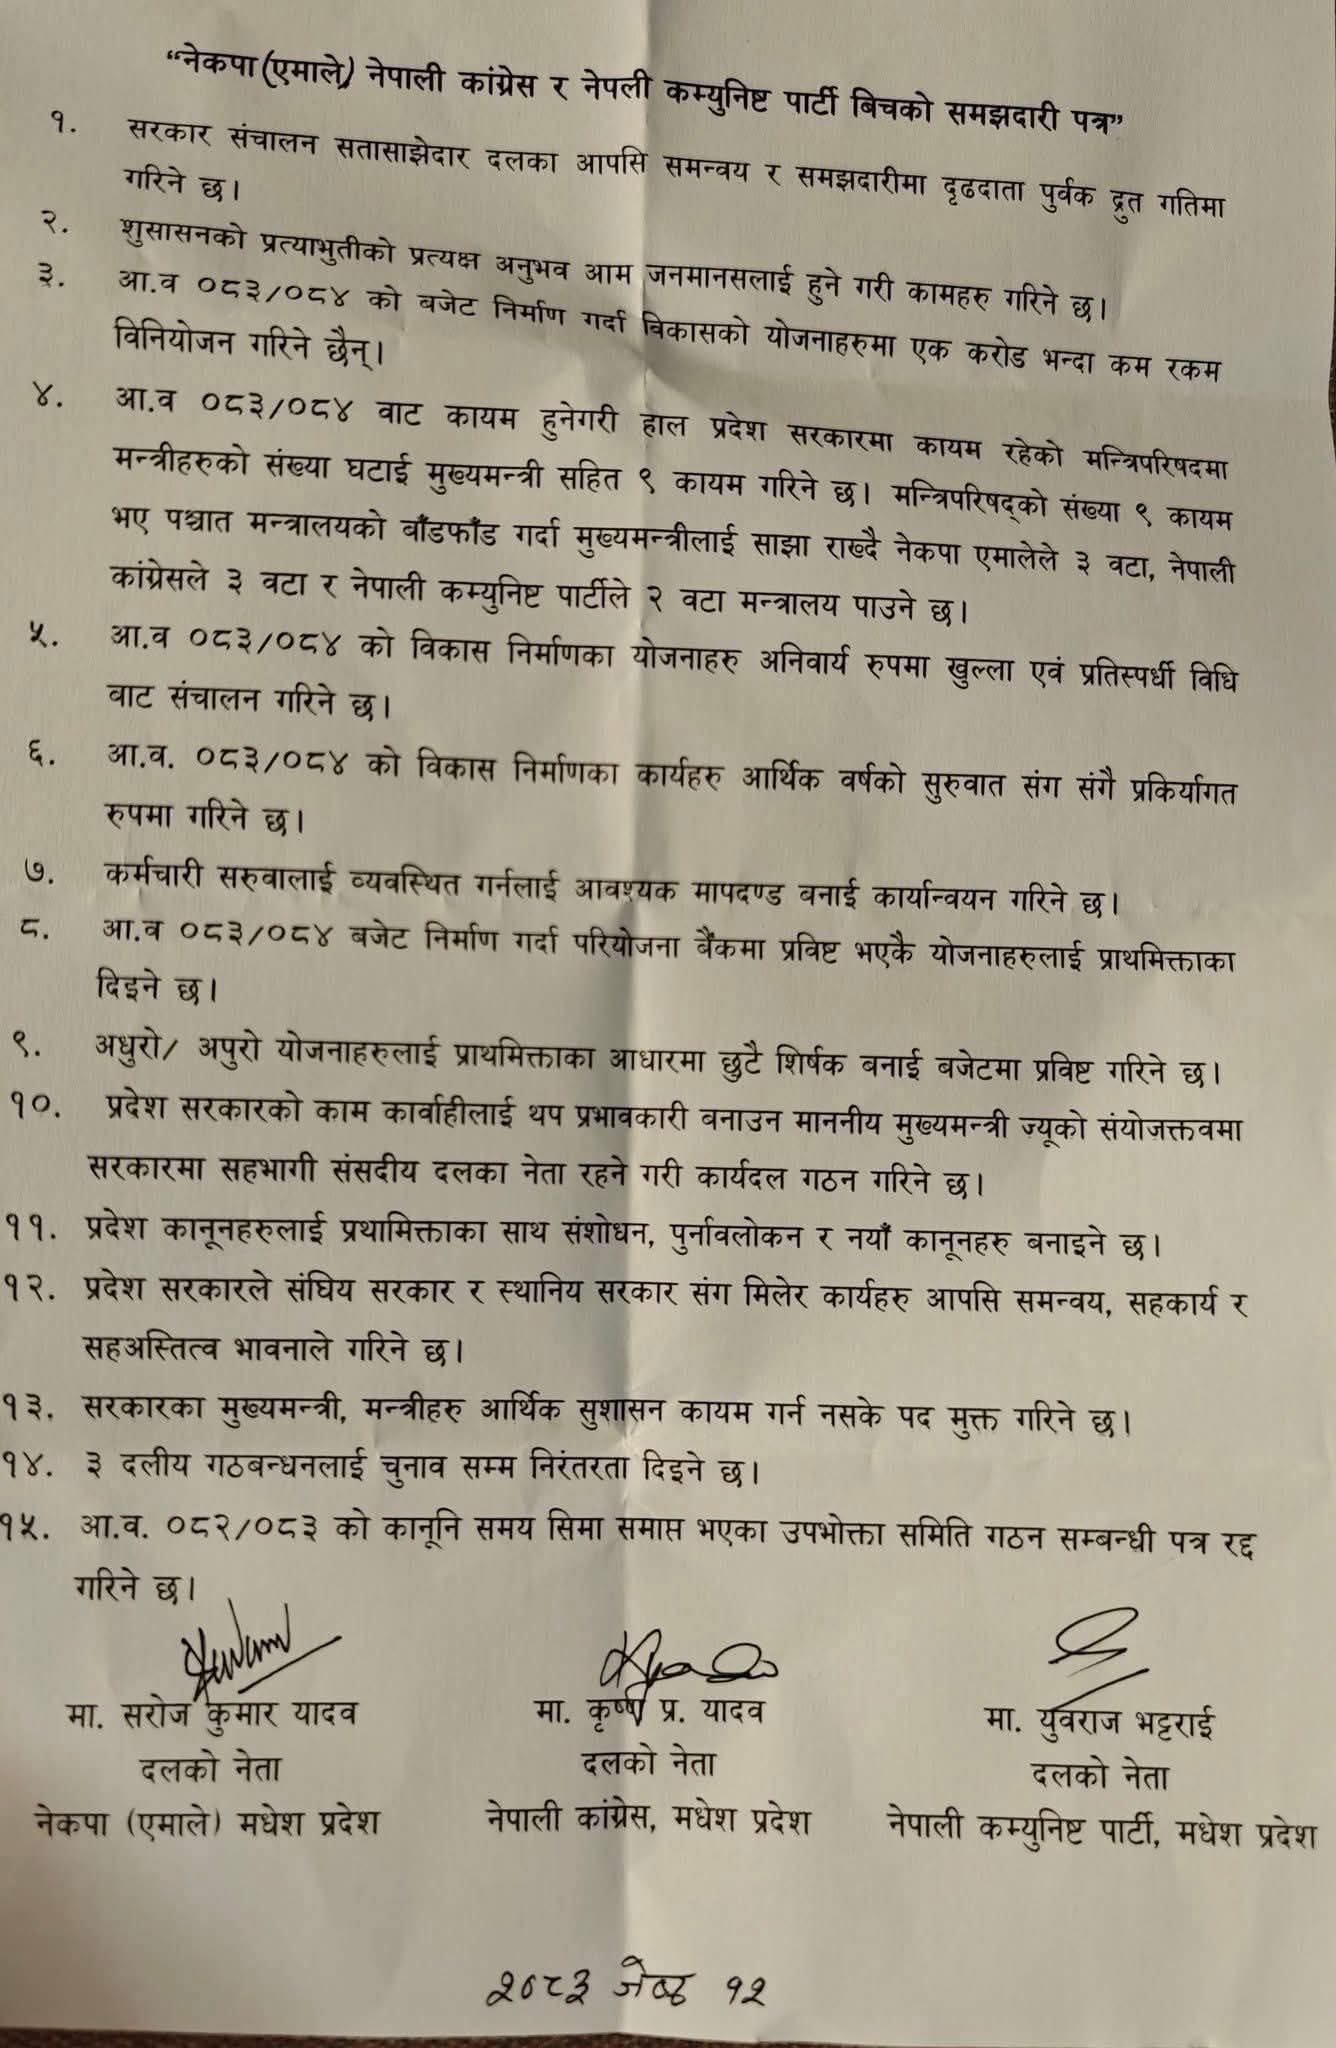 “नेकपा (एमाले) नेपाली कांग्रेस र नेपली कम्युनिष्ट पार्टी बिचको समझदारी पत्र”
१. सरकार संचालन सतासाझेदार दलका आपसि समन्वय र समझदारीमा दृढदाता पुर्वक द्रुत गतिमा
गरिने छ।
२. शुसासनको प्रत्याभुतीको प्रत्यक्ष अनुभव आम जनमानसलाई हुने गरी कामहरु गरिने छ।
३. आ.व ०८३/०८४ को बजेट निर्माण गर्दा विकासको योजनाहरुमा एक करोड भन्दा कम रकम
विनियोजन गरिने छैन्।
४. आ.व ०८३/०८४ वाट कायम हुनेगरी हाल प्रदेश सरकारमा कायम रहेको मन्त्रिपरिषदमा
मन्त्रीहरुको संख्या घटाई मुख्यमन्त्री सहित ९ कायम गरिने छ। मन्त्रिपरिषद्को संख्या ९ कायम
भए पश्चात मन्त्रालयको वाँडफाँड गर्दा मुख्यमन्त्रीलाई साझा राख्दै नेकपा एमालेले ३ वटा, नेपाली
कांग्रेसले ३ वटा र नेपाली कम्युनिष्ट पार्टीले २ वटा मन्त्रालय पाउने छ।
५. आ.व ०८३/०८४ को विकास निर्माणका योजनाहरु अनिवार्य रुपमा खुल्ला एवं प्रतिस्पर्धी विधि
वाट संचालन गरिने छ।
६. आ.व. ०८३/०८४ को विकास निर्माणका कार्यहरु आर्थिक वर्षको सुरुवात संग संगै प्रकिर्यागत
रुपमा गरिने छ।
७. कर्मचारी सरुवालाई व्यवस्थित गर्नलाई आवश्यक मापदण्ड बनाई कार्यान्वयन गरिने छ।
८. आ.व ०८३/०८४ बजेट निर्माण गर्दा परियोजना बैंकमा प्रविष्ट भएकै योजनाहरुलाई प्राथमिक्ताका
दिइने छ।
९. अधुरो/ अपुरो योजनाहरुलाई प्राथमिक्ताका आधारमा छुटै शिर्षक बनाई बजेटमा प्रविष्ट गरिने छ।
१०. प्रदेश सरकारको काम कार्वाहीलाई थप प्रभावकारी बनाउन माननीय मुख्यमन्त्री ज्यूको संयोजक्तवमा
सरकारमा सहभागी संसदीय दलका नेता रहने गरी कार्यदल गठन गरिने छ।
११. प्रदेश कानूनहरुलाई प्रथामिक्ताका साथ संशोधन, पुर्नावलोकन र नयाँ कानूनहरु बनाइने छ।
१२. प्रदेश सरकारले संघिय सरकार र स्थानिय सरकार संग मिलेर कार्यहरु आपसि समन्वय, सहकार्य र
सहअस्तित्व भावनाले गरिने छ।
१३. सरकारका मुख्यमन्त्री, मन्त्रीहरु आर्थिक सुशासन कायम गर्न नसके पद मुक्त गरिने छ।
१४. ३ दलीय गठबन्धनलाई चुनाव सम्म निरंतरता दिइने छ।
१५. आ.व. ०८२/०८३ को कानूनि समय सिमा समाप्त भएका उपभोक्ता समिति गठन सम्बन्धी पत्र रद्द
गरिने छ।
मा. सरोज कुमार यादव मा. कृष्ण प्र. यादव मा. युवराज भट्टराई
दलको नेता दलको नेता दलको नेता
नेकपा (एमाले) मधेश प्रदेश नेपाली कांग्रेस, मधेश प्रदेश नेपाली कम्युनिष्ट पार्टी, मधेश प्रदेश
२०८३ जेष्ठ १२